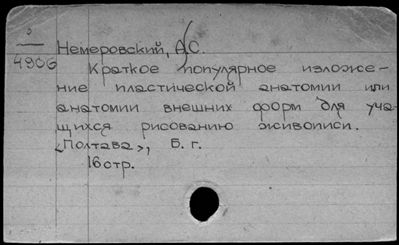 5
4906
Немеровский, А.С.
Краткое популярное изложе-
ние пластической анатомии или
анатомии внешних форм для уча-
щихся рисованию живописи.
<Полтава>, Б. г.
16 стр.